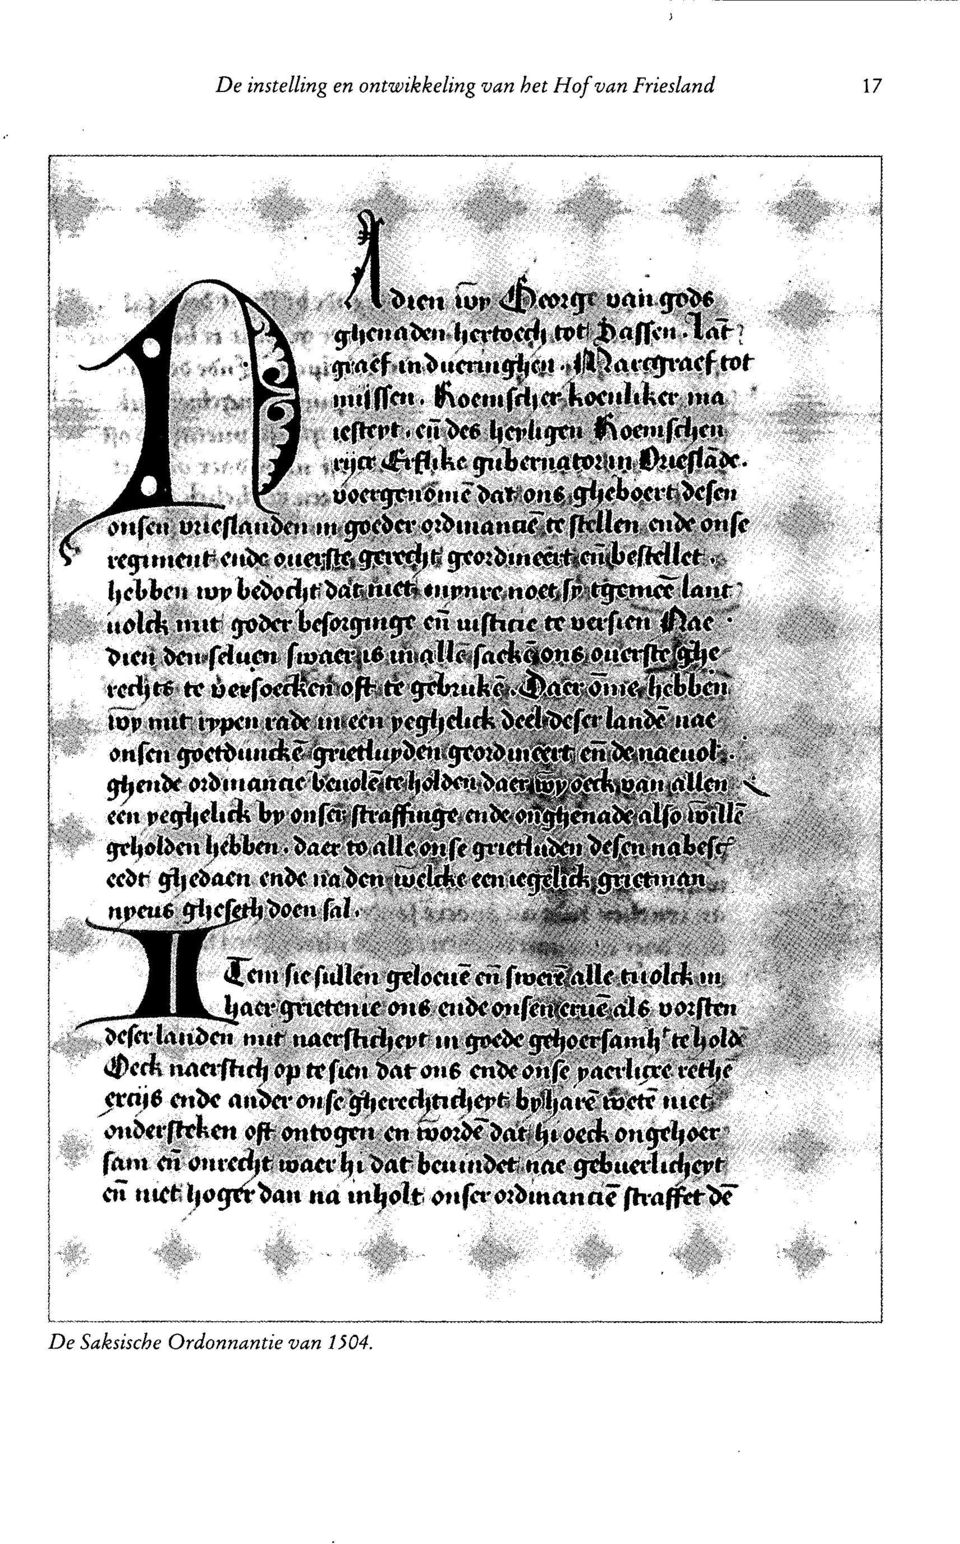 De instelling en ontwikkeling van het Hof van Friesland 17
NAdien wy George van gods
ghenaden hertoech tot Sassen. Lāt
graef in dueringhen. Marcgraef tot
miissen. Roemscher koenliker ma
iesteyt. en̄ des heyligen Roemschen
rijcx Erflike gubernator in Vrieslāde.
voergenōmē dat ons gheboert desen
onsen vrieslanden in goeder ordinanciē te stellen ende onse
regiment ende ouerste gerecht geordineert en̄ bestellet
hebben wy bedocht dat niet mynre noet sy tgemeē lant
uolck mit goder besorginge en̄ iusticie te versien Nae
dien den seluen swaer is in alle sack ons ouerste ghe
rechts te versoecken oft te gebrukē. Daer ōme hebben
wy mit rypen rade in een yeghelick deel deser landē nae
onsen goetdunckē grietluyden geordineert en̄ de naeuol
ghende ordinancie beuolē te holden daer wy oeck van allen
een yeghelick by onser straffinge ende onghenade also willē
geholden hebben. daer to alle onse grietluden desen nabescr
eedt ghedaen ende na den welcke een iegelick grietman
nyeus gheseth doen sal.
ITem sie sullen gelouē en̄ swerē alle tuolck in
haer grietenie ons ende onsen eruē als vorsten
deser landen mit naersticheyt in goede gehoersamh' te holdē
Oeck naerstich op te sien dat ons ende onse yaerlixe rethe
ercijs ende ander onse gherechticheyt by harē wetē niet
ondersteken oft ontogen en wordē dat hi oeck ongehoer
sam en̄ onrecht waer hi dat beuindet nae gebuerlicheyt
en̄ niet hoger dan na inholt onser ordinanciē straffet dē
De Saksische Ordonnantie van 1504.